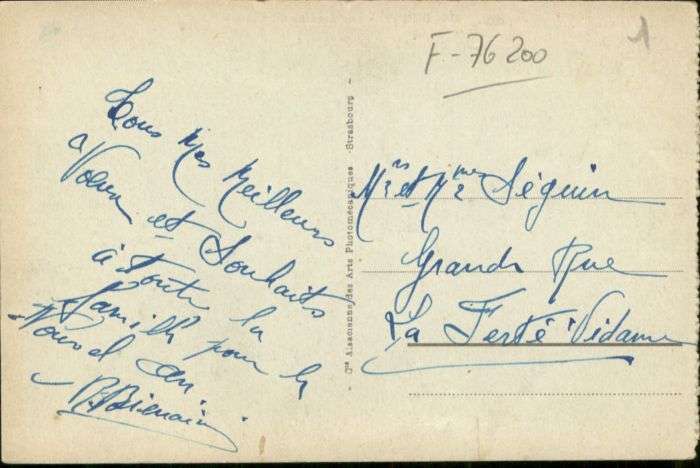 F-76200
1
Tous Mes Meilleurs
Voeux et Souhaits
à toute la
famille pour le
Nouvel an
Cie Alsacienne des Arts Photomécaniques - Strasbourg -
Mrs et Mmes Séguin
Grande Rue
La Ferté Vidame